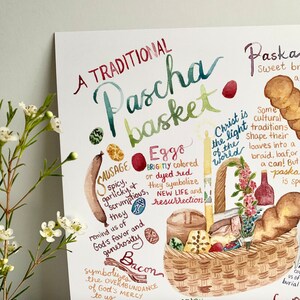 A TRADITIONAL
Pascha
basket
Paska
sweet br
Some
cultural
traditions
shape their
loaves into a
braid, loaf
a can! But
a pask
is s
Christ is
the light
of the
world
Eggs
brightly colored
or dyed red
they symbolize
NEW LIFE and
resurrection
SAUSAGE
spicy,
garlicky &
scrumptious
they
remind us
of God's
favor and
generosity
Bacon
symbolizing
the OVERABUNDANCE
of God's Mercy
to us